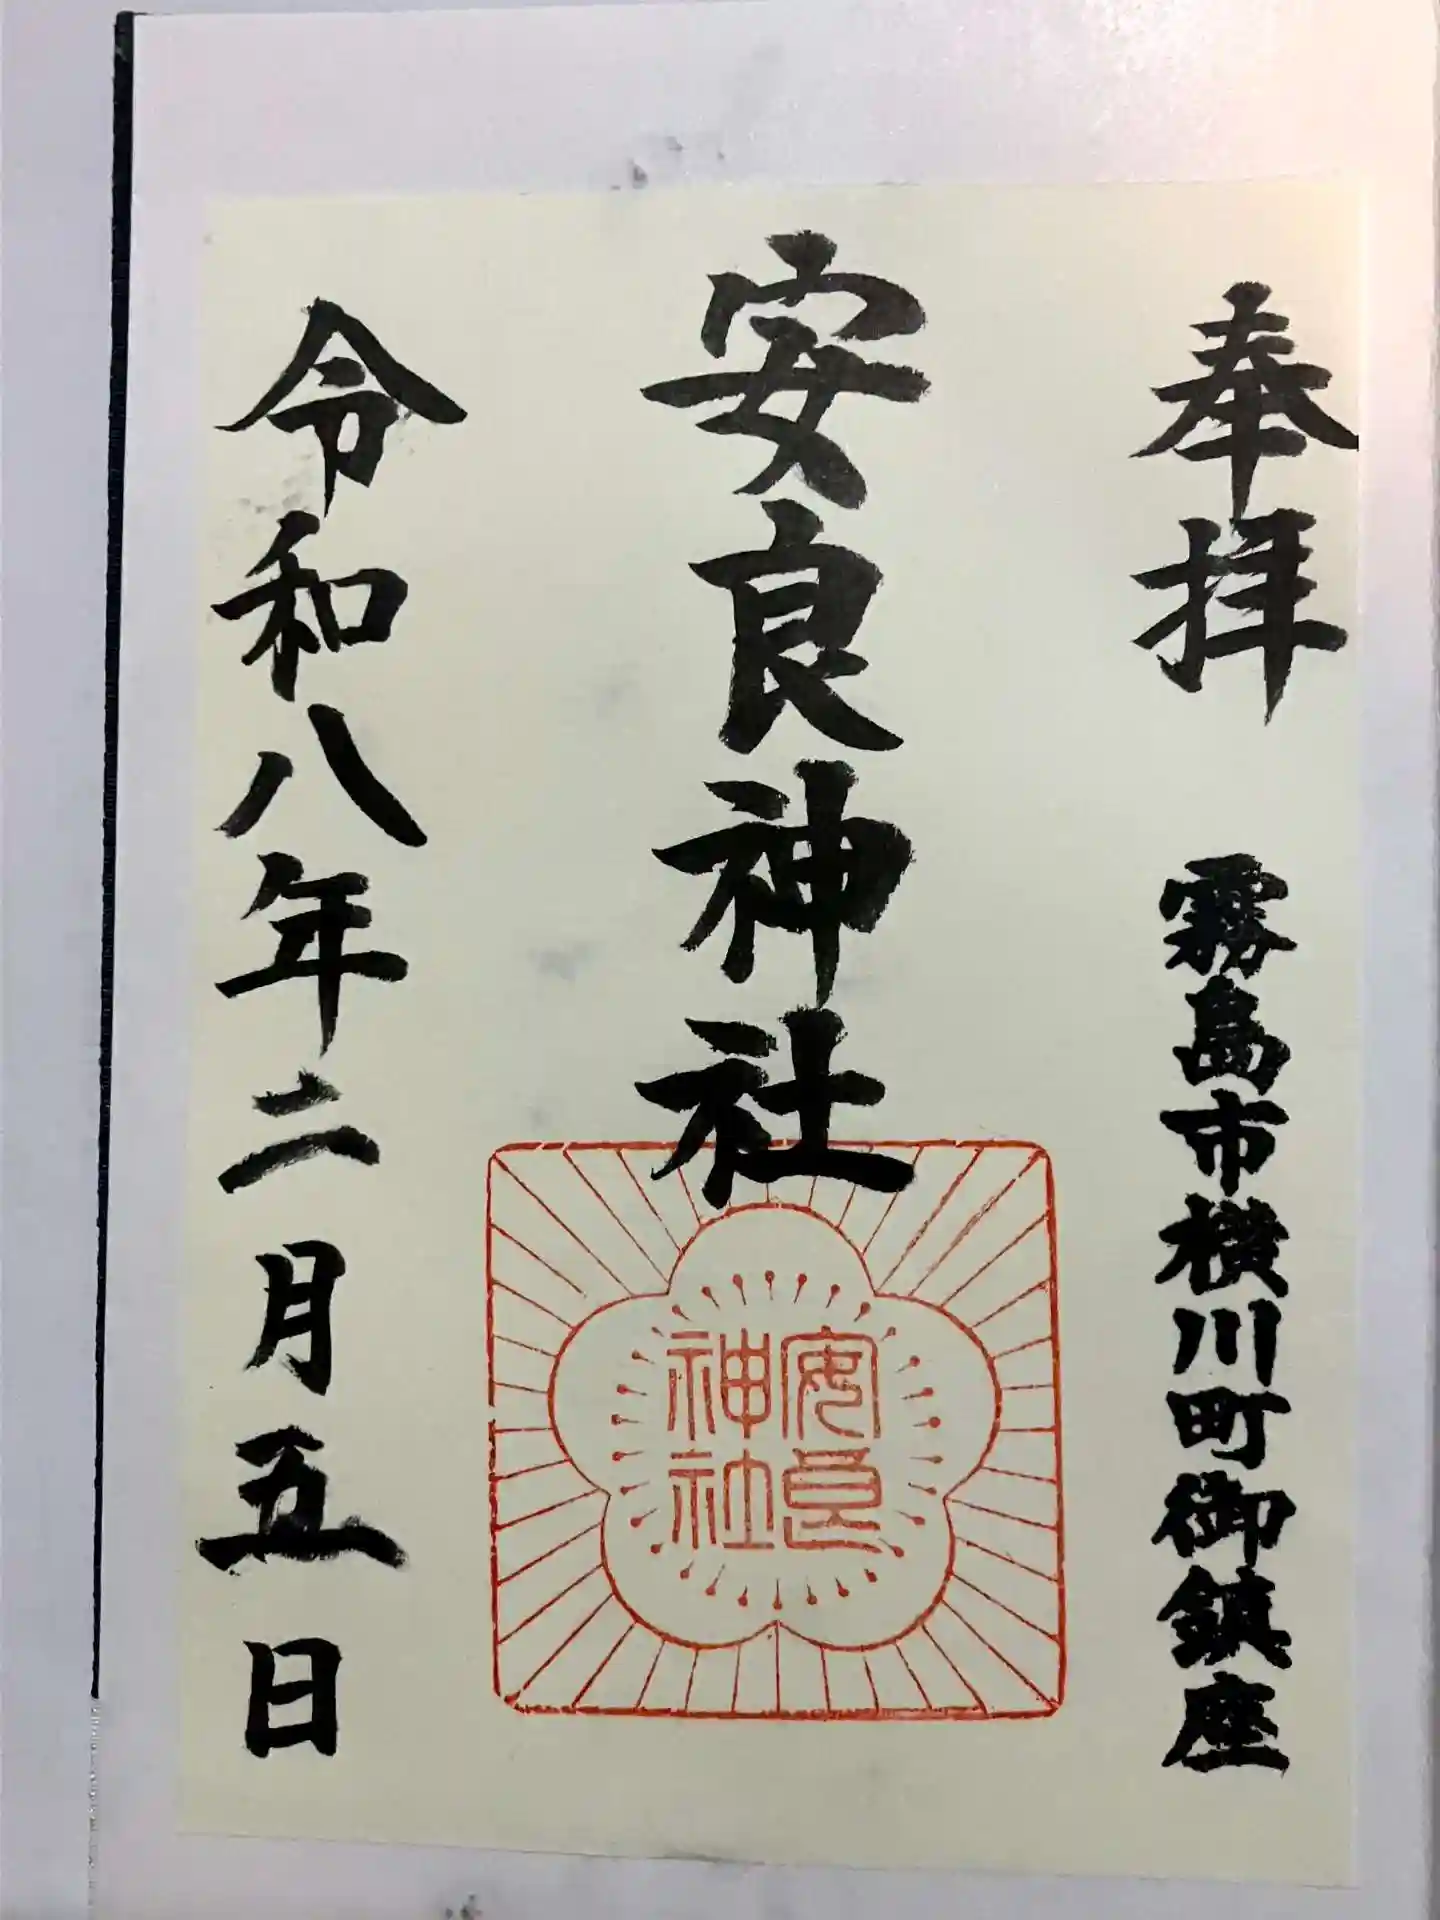 奉拝　霧島市横川町御鎮座
安良神社
安良
神社
令和八年二月五日